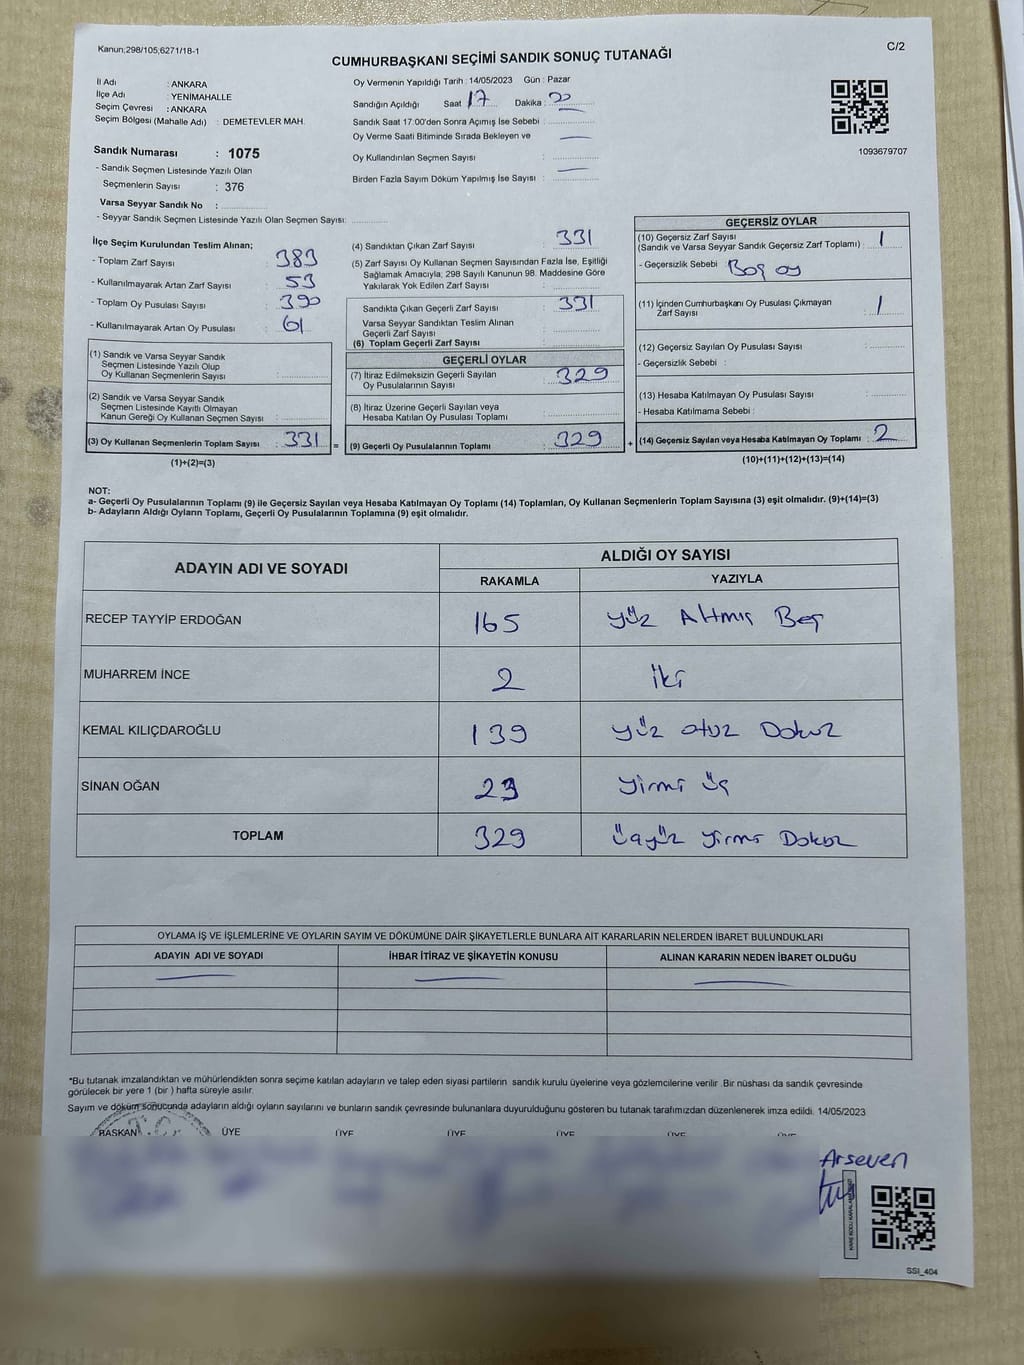 Kanun;298/105,6271/18-1
C/2
CUMHURBAŞKANI SEÇİMİ SANDIK SONUÇ TUTANAĞI
İl Adı : ANKARA
İlçe Adı : YENİMAHALLE
Seçim Çevresi : ANKARA
Seçim Bölgesi (Mahalle Adı) : DEMETEVLER MAH.
Oy Vermenin Yapıldığı Tarih : 14/05/2023 Gün : Pazar
Sandığın Açıldığı Saat 17 Dakika :
Sandık Saat 17:00'den Sonra Açımış İse Sebebi :
Oy Verme Saati Bitiminde Sırada Bekleyen ve
Oy Kullandırılan Seçmen Sayısı :
Birden Fazla Sayım Döküm Yapılmış İse Sayısı :
1093679707
Sandık Numarası : 1075
- Sandık Seçmen Listesinde Yazılı Olan
Seçmenlerin Sayısı : 376
Varsa Seyyar Sandık No :
- Seyyar Sandık Seçmen Listesinde Yazılı Olan Seçmen Sayısı:
İlçe Seçim Kurulundan Teslim Alınan;
- Toplam Zarf Sayısı : 383
- Kullanılmayarak Artan Zarf Sayısı : 53
- Toplam Oy Pusulası Sayısı : 390
- Kullanılmayarak Artan Oy Pusulası : 61
(1) Sandık ve Varsa Seyyar Sandık
Seçmen Listesinde Yazılı Olup
Oy Kullanan Seçmenlerin Sayısı :
(2) Sandık ve Varsa Seyyar Sandık
Seçmen Listesinde Kayıtlı Olmayan
Kanun Gereği Oy Kullanan Seçmen Sayısı :
(3) Oy Kullanan Seçmenlerin Toplam Sayısı : 331 =
(1)+(2)=(3)
(4) Sandıktan Çıkan Zarf Sayısı : 331
(5) Zarf Sayısı Oy Kullanan Seçmen Sayısından Fazla İse, Eşitliği
Sağlamak Amacıyla; 298 Sayılı Kanunun 98. Maddesine Göre
Yakılarak Yok Edilen Zarf Sayısı :
Sandıkta Çıkan Geçerli Zarf Sayısı : 331
Varsa Seyyar Sandıktan Teslim Alınan
Geçerli Zarf Sayısı :
(6) Toplam Geçerli Zarf Sayısı :
GEÇERLİ OYLAR
(7) İtiraz Edilmeksizin Geçerli Sayılan
Oy Pusulalarının Sayısı : 329
(8) İtiraz Üzerine Geçerli Sayılan veya
Hesaba Katılan Oy Pusulası Toplamı :
(9) Geçerli Oy Pusulalarının Toplamı : 329 +
GEÇERSİZ OYLAR
(10) Geçersiz Zarf Sayısı
(Sandık ve Varsa Seyyar Sandık Geçersiz Zarf Toplamı) : 1
- Geçersizlik Sebebi : Boş oy
(11) İçinden Cumhurbaşkanı Oy Pusulası Çıkmayan
Zarf Sayısı : 1
(12) Geçersiz Sayılan Oy Pusulası Sayısı :
- Geçersizlik Sebebi :
(13) Hesaba Katılmayan Oy Pusulası Sayısı :
- Hesaba Katılmama Sebebi :
(14) Geçersiz Sayılan veya Hesaba Katılmayan Oy Toplamı : 2
(10)+(11)+(12)+(13)=(14)
NOT:
a- Geçerli Oy Pusulalarının Toplamı (9) ile Geçersiz Sayılan veya Hesaba Katılmayan Oy Toplamı (14) Toplamları, Oy Kullanan Seçmenlerin Toplam Sayısına (3) eşit olmalıdır. (9)+(14)=(3)
b- Adayların Aldığı Oyların Toplamı, Geçerli Oy Pusulalarının Toplamına (9) eşit olmalıdır.
ADAYIN ADI VE SOYADI
ALDIĞI OY SAYISI
RAKAMLA YAZIYLA
RECEP TAYYİP ERDOĞAN 165 yüz Altmış Beş
MUHARREM İNCE 2 iki
KEMAL KILIÇDAROĞLU 139 yüz otuz Dokuz
SİNAN OĞAN 23 yirmi üç
TOPLAM 329 üçyüz yirmi Dokuz
OYLAMA İŞ VE İŞLEMLERİNE VE OYLARIN SAYIM VE DÖKÜMÜNE DAİR ŞİKAYETLERLE BUNLARA AİT KARARLARIN NELERDEN İBARET BULUNDUKLARI
ADAYIN ADI VE SOYADI İHBAR İTİRAZ VE ŞİKAYETİN KONUSU ALINAN KARARIN NEDEN İBARET OLDUĞU
*Bu tutanak imzalandıktan ve mühürlendikten sonra seçime katılan adayların ve talep eden siyasi partilerin sandık kurulu üyelerine veya gözlemcilerine verilir .Bir nüshası da sandık çevresinde
görülecek bir yere 1 (bir ) hafta süreyle asılır.
Sayım ve döküm sonucunda adayların aldığı oyların sayılarını ve bunların sandık çevresinde bulunanlara duyurulduğunu gösteren bu tutanak tarafımızdan düzenlenerek imza edildi. 14/05/2023
BAŞKAN ÜYE ÜYE ÜYE ÜYE ÜYE ÜYE
T.C.
Arseven
SSI_404